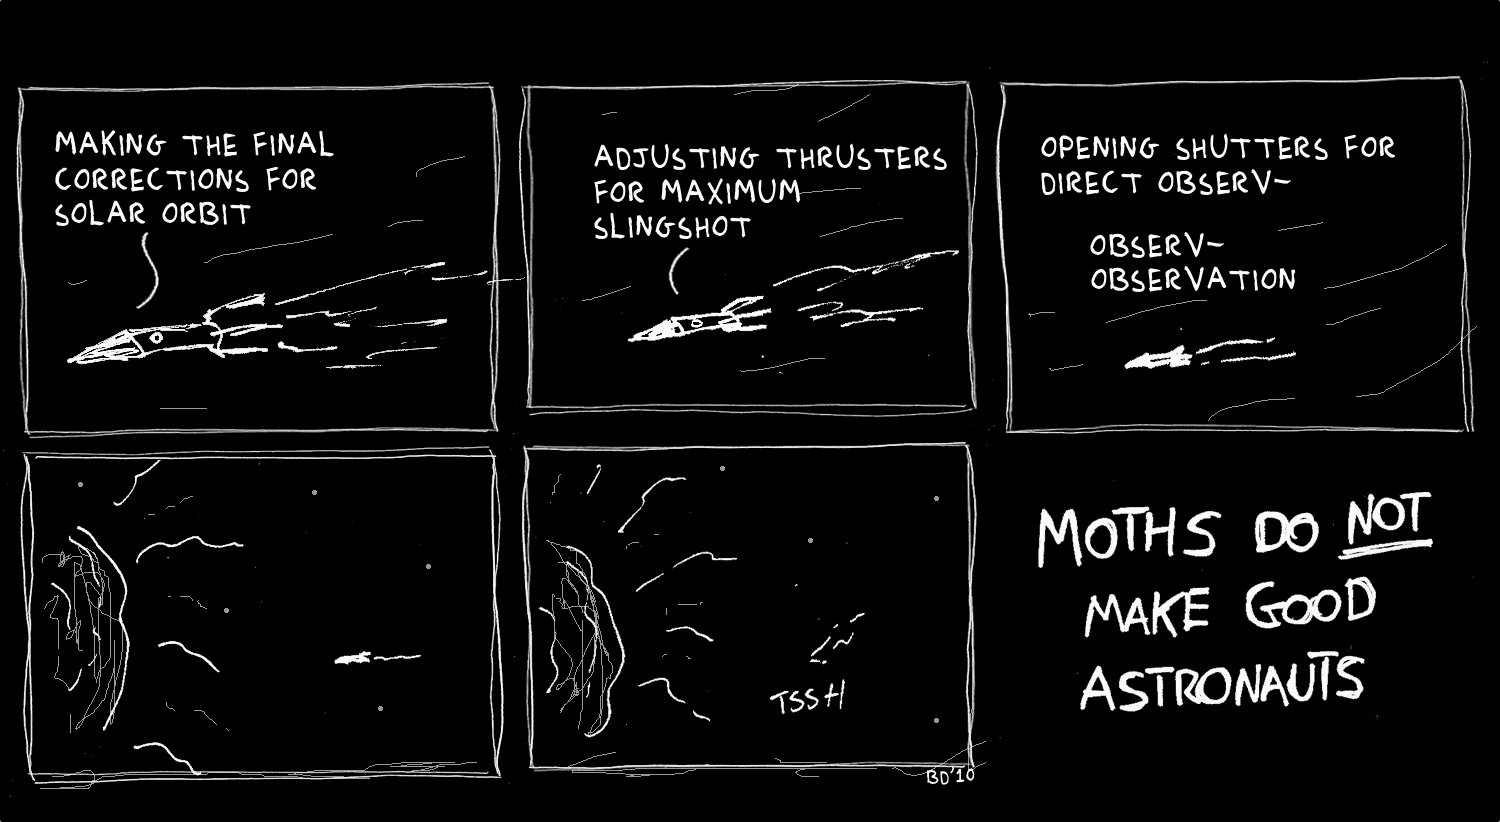 MAKING THE FINAL
CORRECTIONS FOR
SOLAR ORBIT
ADJUSTING THRUSTERS
FOR MAXIMUM
SLINGSHOT
OPENING SHUTTERS FOR
DIRECT OBSERV-
OBSERV-
OBSERVATION
TSSH
BD'10
MOTHS DO NOT
MAKE GOOD
ASTRONAUTS